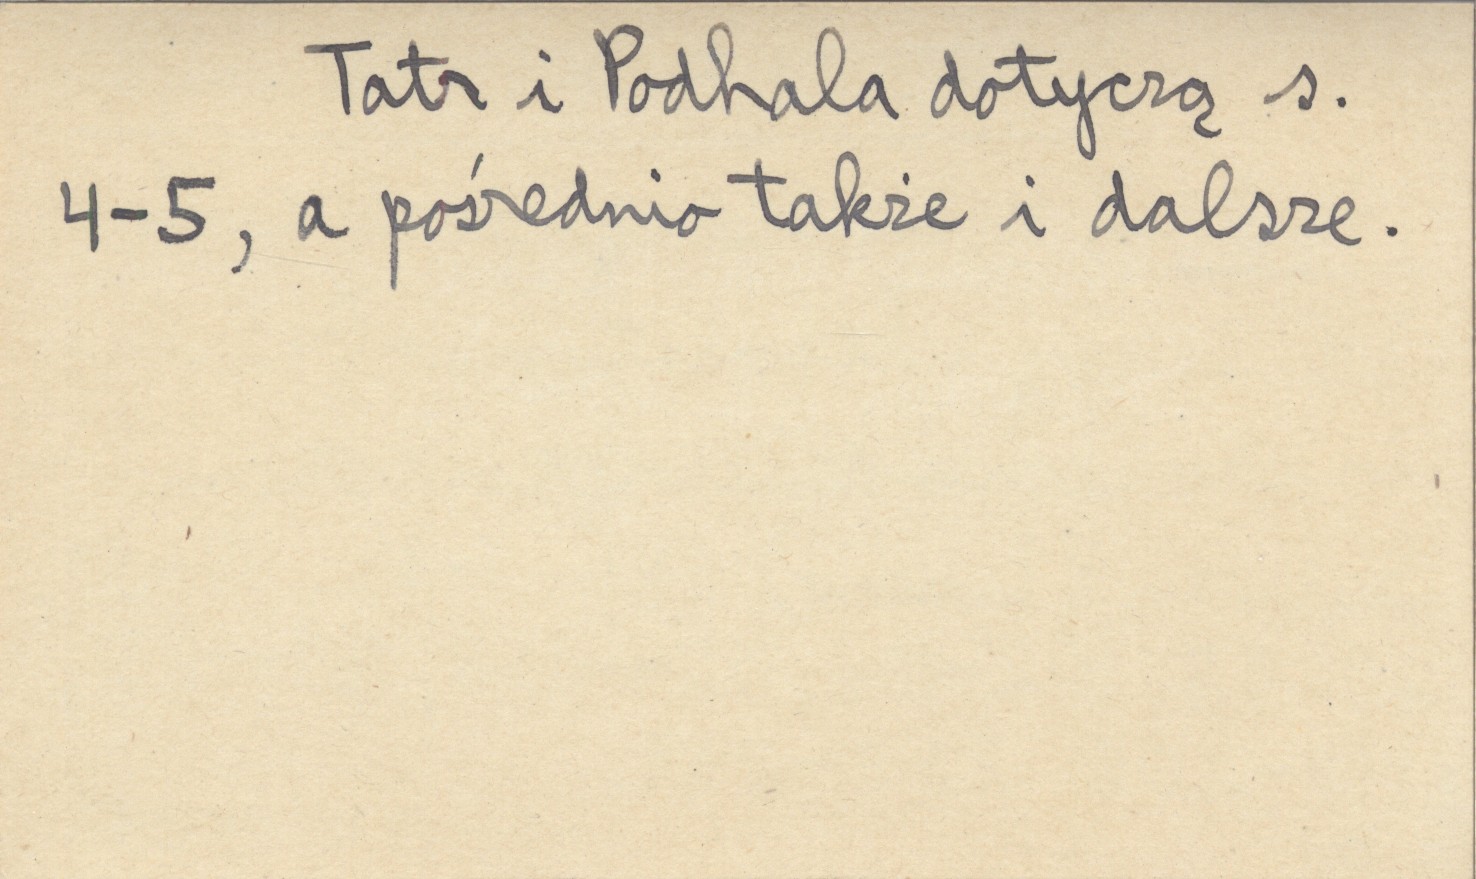 Tatr i Podhala dotyczą s.
4-5, a pośrednio także i dalsze.